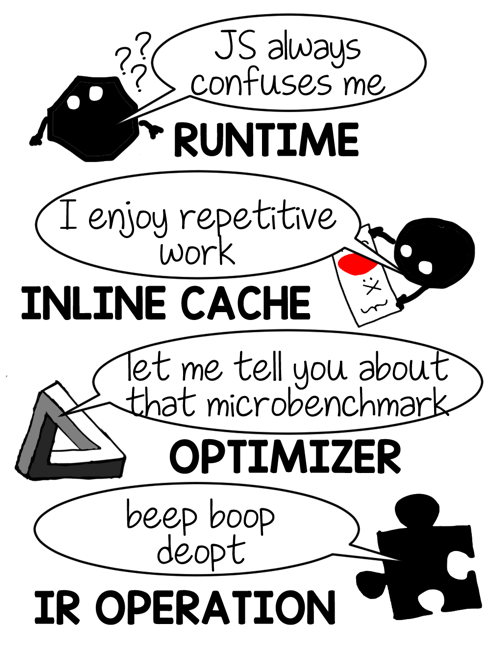 ???
JS always
confuses me
RUNTIME
I enjoy repetitive
work
INLINE CACHE
let me tell you about
that microbenchmark
OPTIMIZER
beep boop
deopt
IR OPERATION